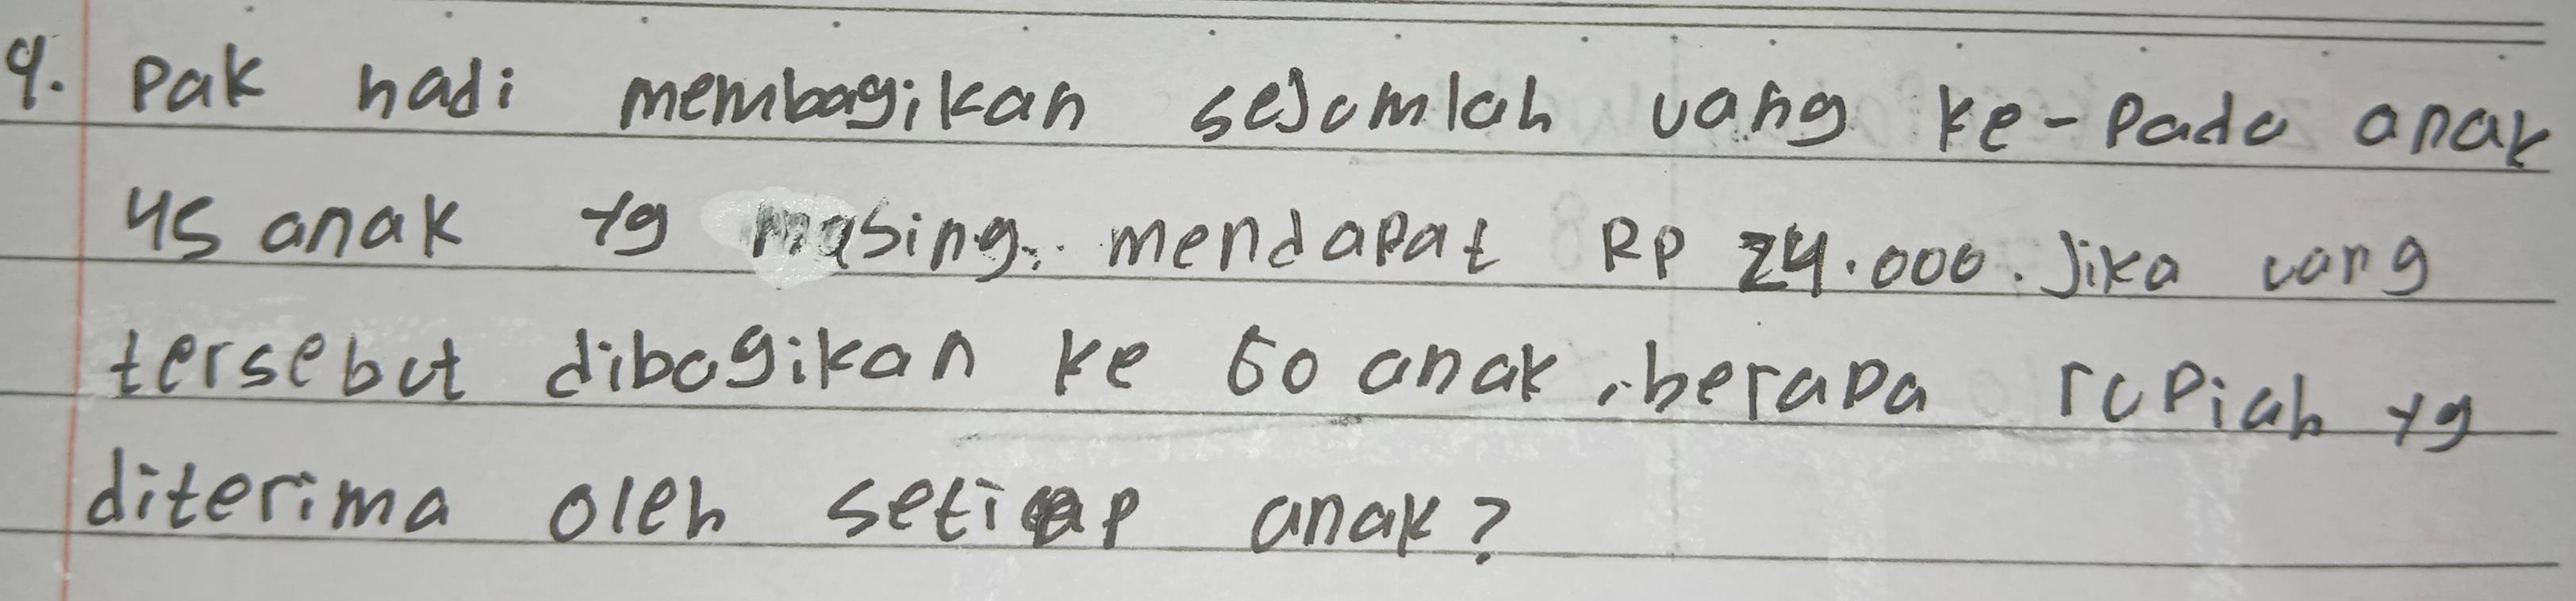 9. Pak hadi membagikan sejumlah uang ke-Pada anak
45 anak yg masing. mendapat RP 24.000. Jika uang
tersebut dibagikan ke 60 anak, berapa rupiah yg
diterima oleh setiap anak?